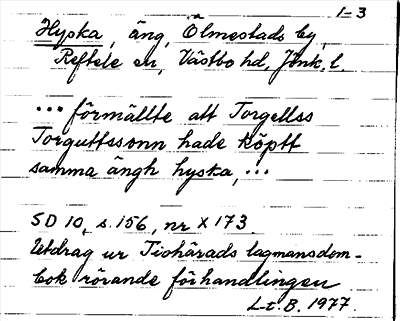 1-3
Hyska, äng, Ölmestads by,
Reftele sn, Västbo hd, Jönk. l.
... förmällte att Torgellss
Torguttssonn hade köptt
samma ängh hyska, ...
SD 10, s. 156, nr X 173.
Utdrag ur Tiohärads lagmansdom-
bok rörande förhandlingen
L-t. B. 1977.